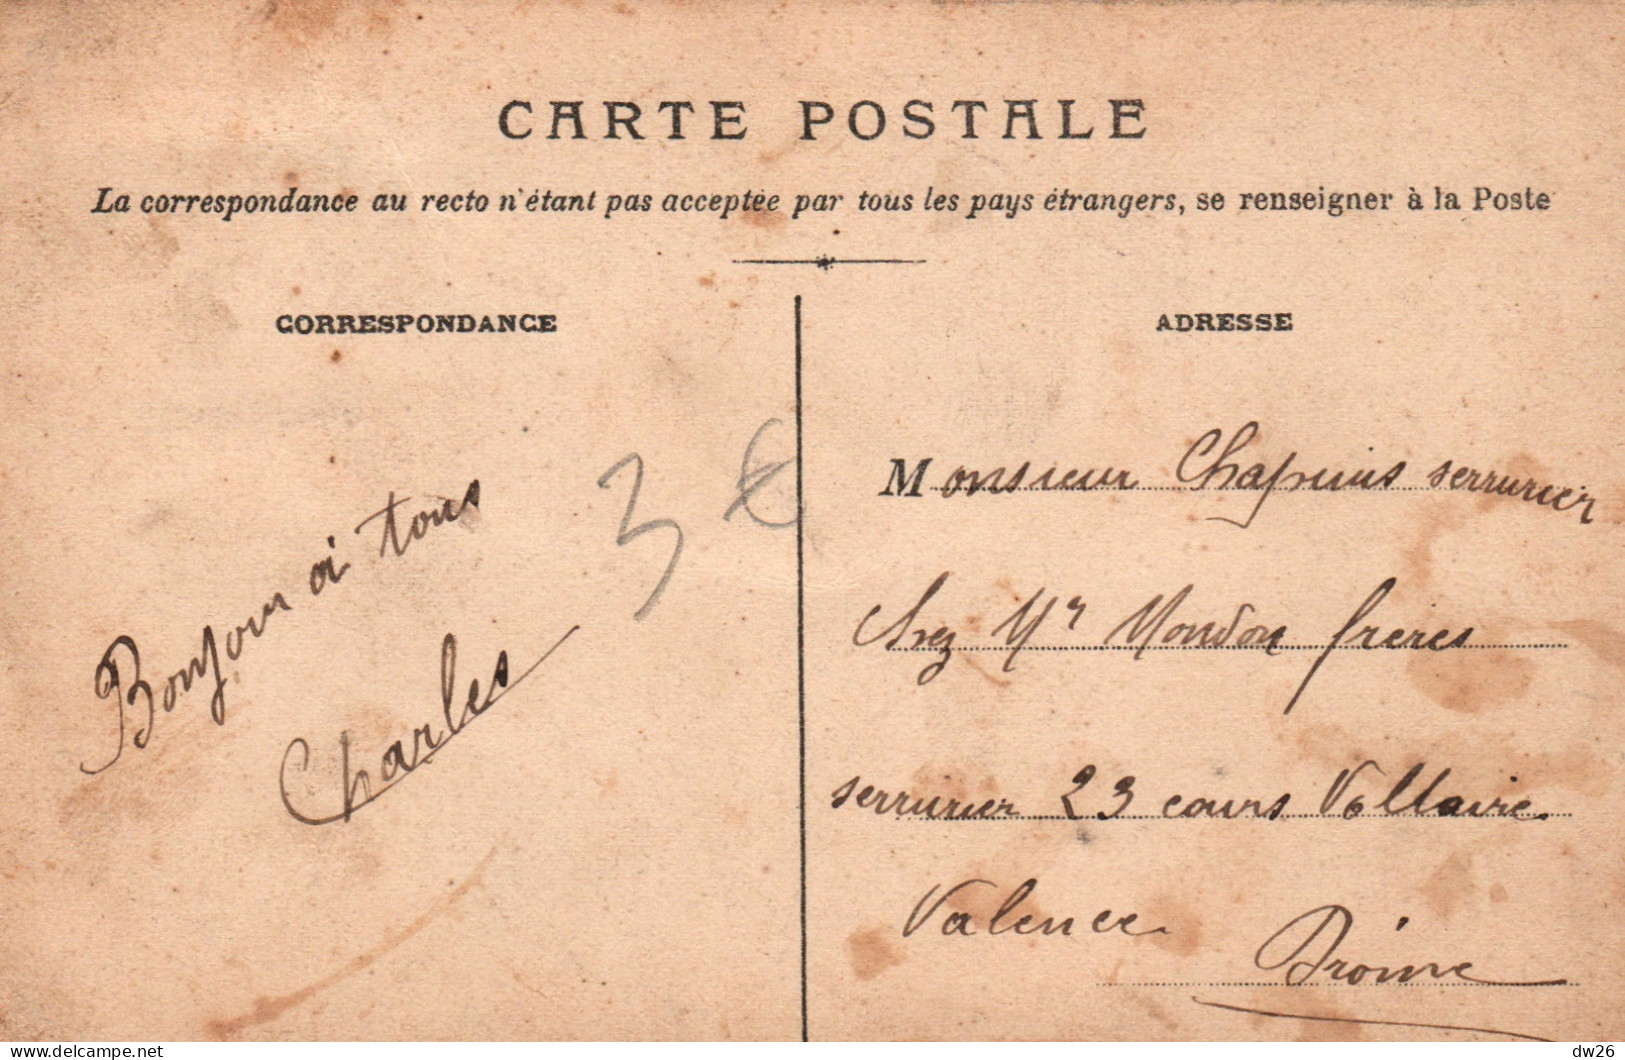 CARTE POSTALE
La correspondance au recto n'étant pas acceptée par tous les pays étrangers, se renseigner à la Poste
CORRESPONDANCE
Bonjour à tous
Charles
3 €
ADRESSE
Monsieur Chapuis serrurier
chez Mr Mondon freres
serrurier 23 cours Voltaire
Valence
Drôme
dw26